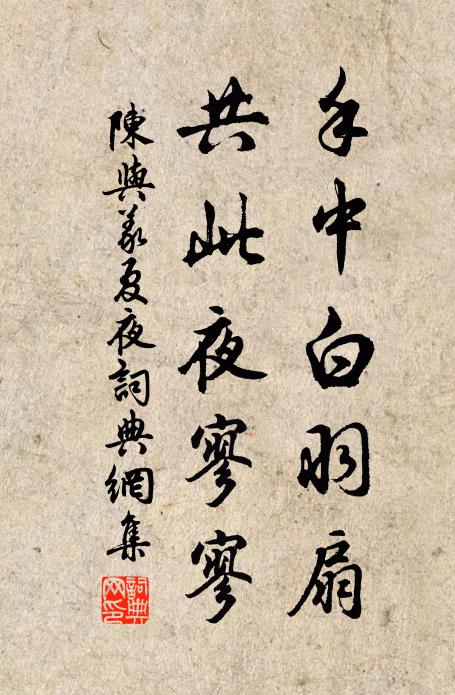 手中白羽扇
共此夜寥寥
陳與義夏夜詞典網集
詞典网印